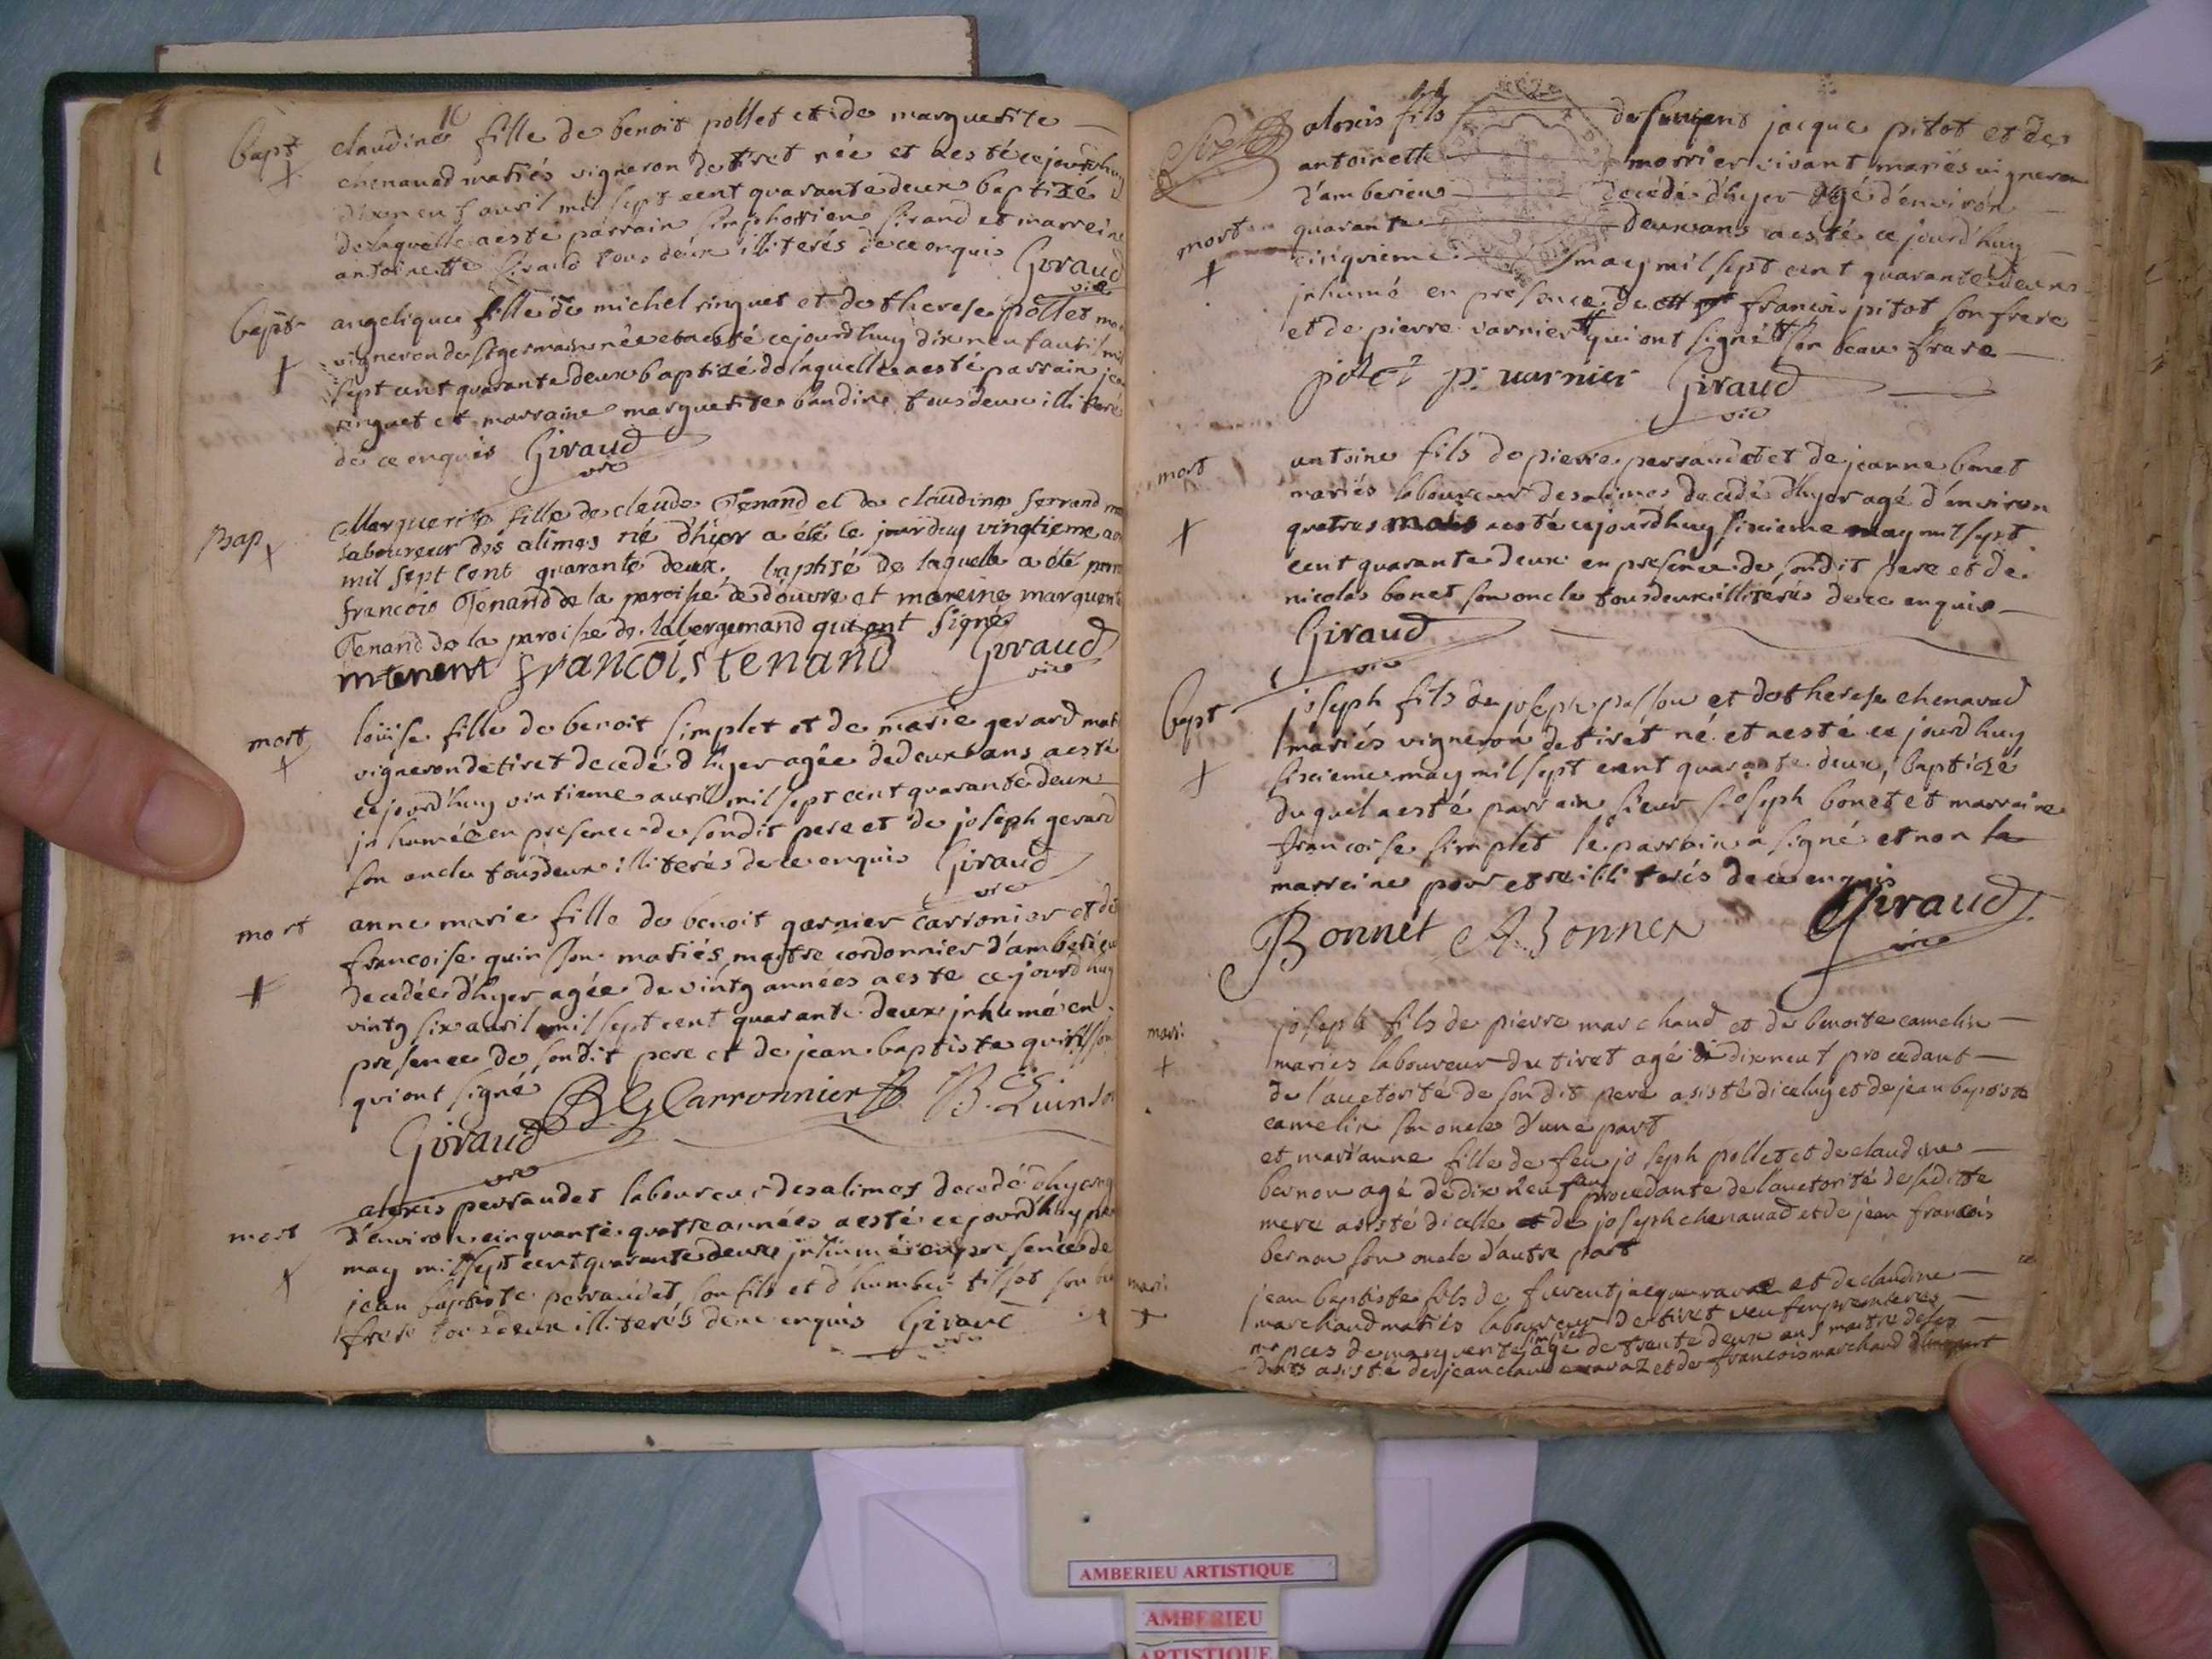 16
bapt
claudine fille de benoit pollet et de marguerite
chenavad mariés vigneron de tiret née et aesté cejourdhuy
dixneuf auril mil sept cent quarante deux baptizé
de laquelle aeste parrain simphorien sirand et marreine
antoinette sirand tous deux illiterés de ce enquis Giraud
vic
bapt
angelique fille de michel singuet et de therese pollet
vigneron de st germain née et aesté cejourdhuy dixneuf auril mil
sept cent quarante deux baptizé de laquelle aesté parrain
singuet et marraine marguerite bandine tous deux illiteré
de ce enquis Giraud
vic
Bap
Marguerite fille de claude Tenand et de claudine ferrand
laboureur des alimes né d'hier a été ce jourduy vingtieme
mil sept cent quarante deux. baptisé de laquelle a été
francois Tenand de la paroisse de douvre et mareine marguerit
Tenand de la paroisse de labergemand qui ont signé
m tenent francois tenand Giraud
vic
mort
loüise fille de benoit simplet et de marie gerard
vigneron de tiret decedé d'hyer agée de deux ans aesté
cejourdhuy vintieme auril mil sept cent quarante deux
inhumée en presence de sondit pere et de joseph gerard
son oncle tous deux illiterés de ce enquis Giraud
vic
mort
anne marie fille de benoit garnier carronier et de
francoise quinson mariés maître cordonnier d'amberieu
decedée d'hyer agée de vintg années aeste cejourdhuy
vintg six auril mil sept cent quarante deux inhumé en
presence de sondit pere et de jean baptiste quinson
qui ont signé BG Carronnier JB. Quinson
Giraud
vic
mort
alexis perraudet laboureur des alimes decedé d'hyer
d'environ cinquante quatre années aesté cejourdhuy
may mil sept cent quarante deux inhumé en presence de
jean baptiste perraudet son fils et d'humber tissot son
frere tous deux illiterés de ce enquis Giraud
vic
alexis fils de furent jacque pitot et de
antoinette morrier vivant mariés vigneron
d'amberieu decédé d'hyer agé d'environ
mort
quarante deux ans aesté ce jourd'huy
cinquieme may mil sept cent quarante deux
inhumé en presence de francois pitot son frere
et de pierre varnier qui ont signé son beau frere
pitot p: uarnier Giraud
vic
mort
antoine fils de pierre perraudet et de jeanne bonet
mariés laboureur des alimes decedé d'hyer agé d'environ
quatres mois aesté cejourdhuy sixieme may mil sept
cent quarante deux en presence de sondit pere et de
nicolas bonet son oncle tous deux illiterés de ce enquis
Giraud
vic
bapt
joseph fils de joseph passou et de therese chenavad
mariés vigneron de tiret né et aesté ce jourdhuy
sixieme may mil sept cent quarante deux baptizé
duquel aesté parrain sieur joseph bonet et marraine
francoise simplet le parrain a signé et non la
marreine pour etre illiterés de ce enquis
Bonnet Giraud
vic
mari
joseph fils de pierre marchand et de benoite camelin
mariés laboureur du tiret agé de dixneuf procedant
de l'auctorité de son dit pere asisté diceluy et de jean baptiste
camelin son oncle d'une part
et marianne fille de feu joseph pollet et de claudine
bernou agé de dix neuf ans procedante de l'auctorité de saditte
mere asisté dicelle et de joseph chenavad et de jean francois
bernou son oncle d'autre part
mari
jean baptiste fils de furent jacque ravat et de claudine
marchand mariés laboureur de tiret veuf en premieres
nopces de marguerite simplet agé de trente deux ans maitre de ses
droits asisté de jean claude ravaz et de francois marchand d'une part
AMBERIEU ARTISTIQUE
AMBERIEU
ARTISTIQUE